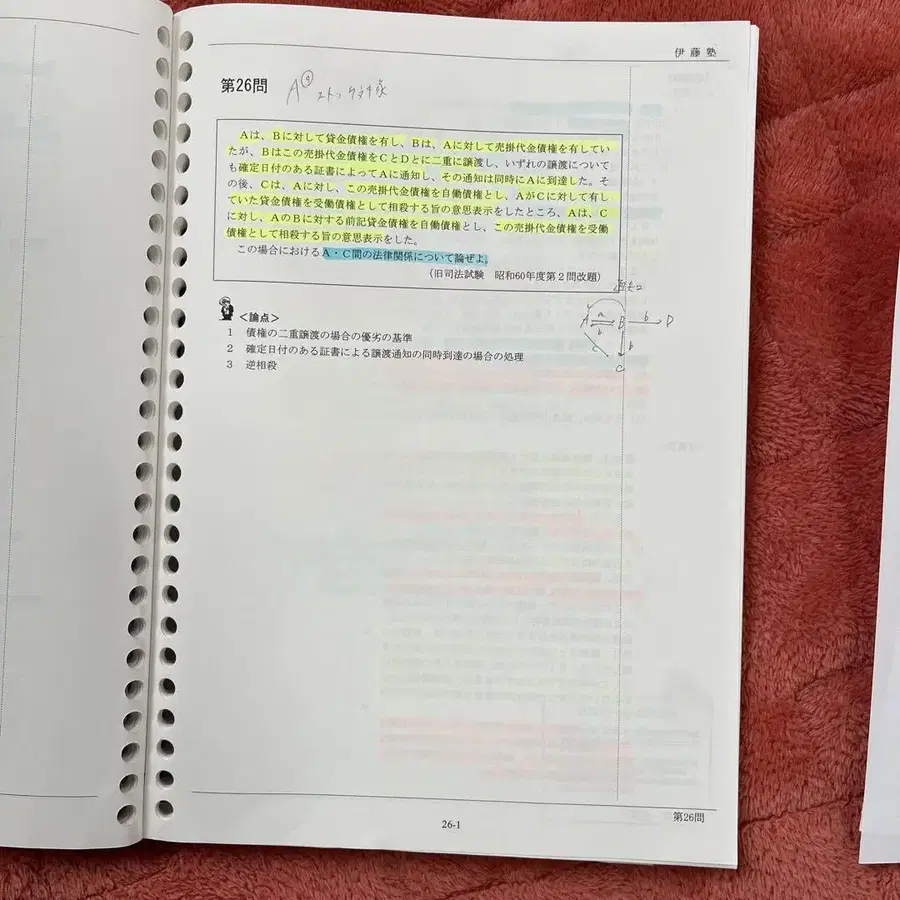 伊藤塾
第26問
Aは、Bに対して貸金債権を有し、Bは、Aに対して売掛代金債権を有してい
たが、Bはこの売掛代金債権をCとDとに二重に譲渡し、いずれの譲渡について
も確定日付のある証書によってAに通知し、その通知は同時にAに到達した。そ
の後、Cは、Aに対し、この売掛代金債権を自働債権とし、AがCに対して有し
ていた貸金債権を受働債権として相殺する旨の意思表示をしたところ、Aは、C
に対し、AのBに対する前記貸金債権を自働債権とし、この売掛代金債権を受働
債権として相殺する旨の意思表示をした。
この場合におけるA・C間の法律関係について論ぜよ。
(旧司法試験 昭和60年度第2問改題)
<論点>
1 債権の二重譲渡の場合の優劣の基準
2 確定日付のある証書による譲渡通知の同時到達の場合の処理
3 逆相殺
A a B b D
b b
c
C
26-1
第26問